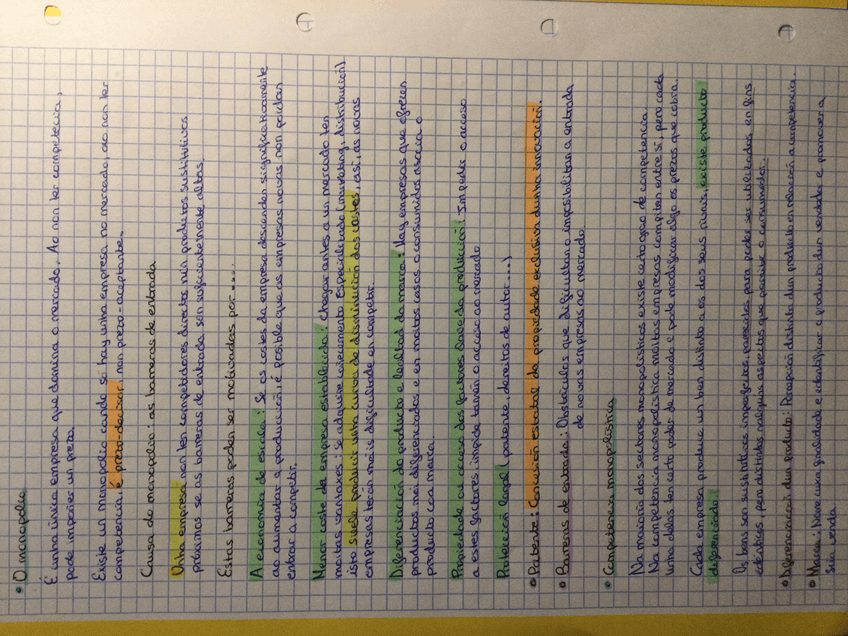 • O monopolio
É unha única empresa que domina o mercado. Ao non ter competencia,
pode impoñer un prezo.
Existe un monopolio cando só hay unha empresa no mercado, ao non ter
competencia, é prezo-decisor, non prezo-aceptante.
Causa do monopolio: as barreras de entrada
Unha empresa non ten competidores directos nin productos sustitutivos
próximos se as barreras de entrada son suficientemente altas.
Estas barreras poden ser motivadas por....
A economía de escala: Se os costes da empresa descenden significativamente
ao aumentar a producción, é posible que as empresas novas non poidan
entrar a competir.
Menor coste da empresa establecida: Chegar antes a un mercado ten
moitas vantaxes: se adquire coñecemento especializado (marketing, distribución)
isto suele producir unha curva de disminución dos costes, así, as novas
empresas terán máis dificultade en competir.
Diferenciación do producto e lealtad da marca: Hay empresas que ofrecen
productos moi diferenciados e en moitos casos o consumidor asocia o
producto coa marca.
Propiedade ou acceso dos factores clave da producción: Impedir o acceso
a estes factores, impide tamén o acceso ao mercado
Protección legal (patente, dereitos de autor...)
• Patente: Concesión estatal da propiedade exclusiva dunha innovación.
• Barreras de entrada: Obstáculos que dificultan o imposibilitan a entrada
de novas empresas ao mercado.
• Competencia monopolística
Na maioría dos sectores monopolísticos existe certo grao de competencia.
Na competencia monopolística moitas empresas compiten entre si, pero cada
unha delas ten certo poder de mercado e pode modificar algo os prezos que cobra.
Cada empresa produce un ben distinto a os dos seus rivais, existe producto
diferenciado.
Os bens son sustitutivos imperfectos, parecidos para poder ser utilizados en fins
idénticos, pero distintos nalgúns aspectos que percibe o consumidor.
• Diferenciación dun producto: Percepción distinta dun producto en relación a competencia.
• Marca: Nome cuxa finalidade e identificar o producto dun vendedor e promover a
súa venda